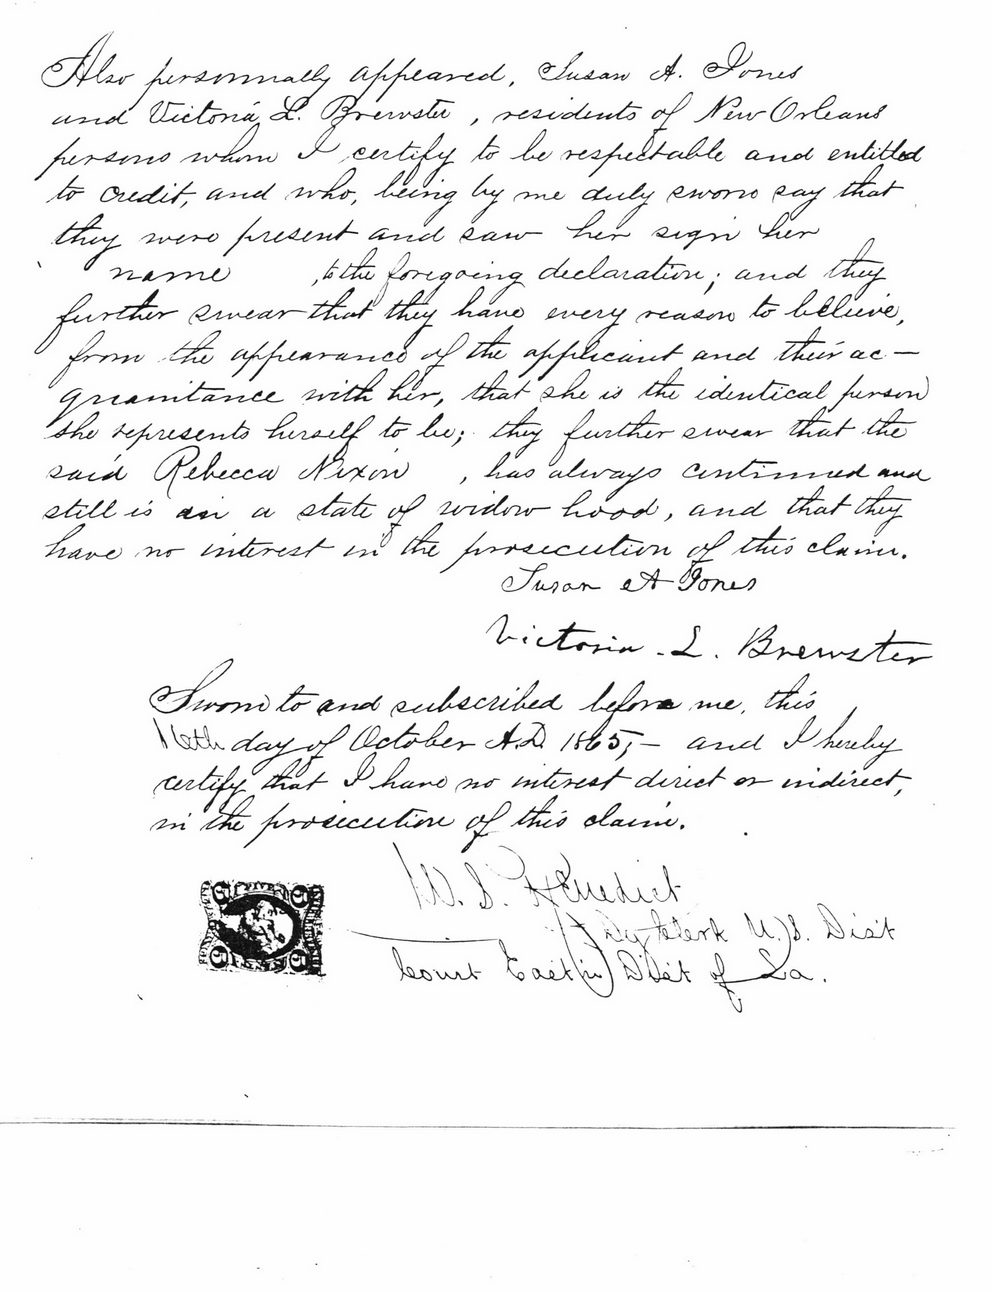 Also personally appeared, Susan A. Jones
and Victoria L. Brewster, residents of New Orleans
persons whom I certify to be respectable and entitled
to credit, and who, being by me duly sworn say that
they were present and saw her sign her
name , to the foregoing declaration; and they
further swear that they have every reason to believe,
from the appearance of the applicant and their ac-
quaintance with her, that she is the identical person
she represents herself to be; they further swear that the
said Rebecca Nixon , has always continued and
still is in a state of widow hood, and that they
have no interest in the prosecution of this claim.
Susan A Jones
Victoria. L. Brewster
Sworn to and subscribed before me, this
16th day of October A.D. 1865,- and I hereby
certify that I have no interest direct or indirect,
in the prosecution of this claim.
W. S. Benedict
Dy Clerk U.S. Dist
Court East(n) Dist of La.
5 5
5 5